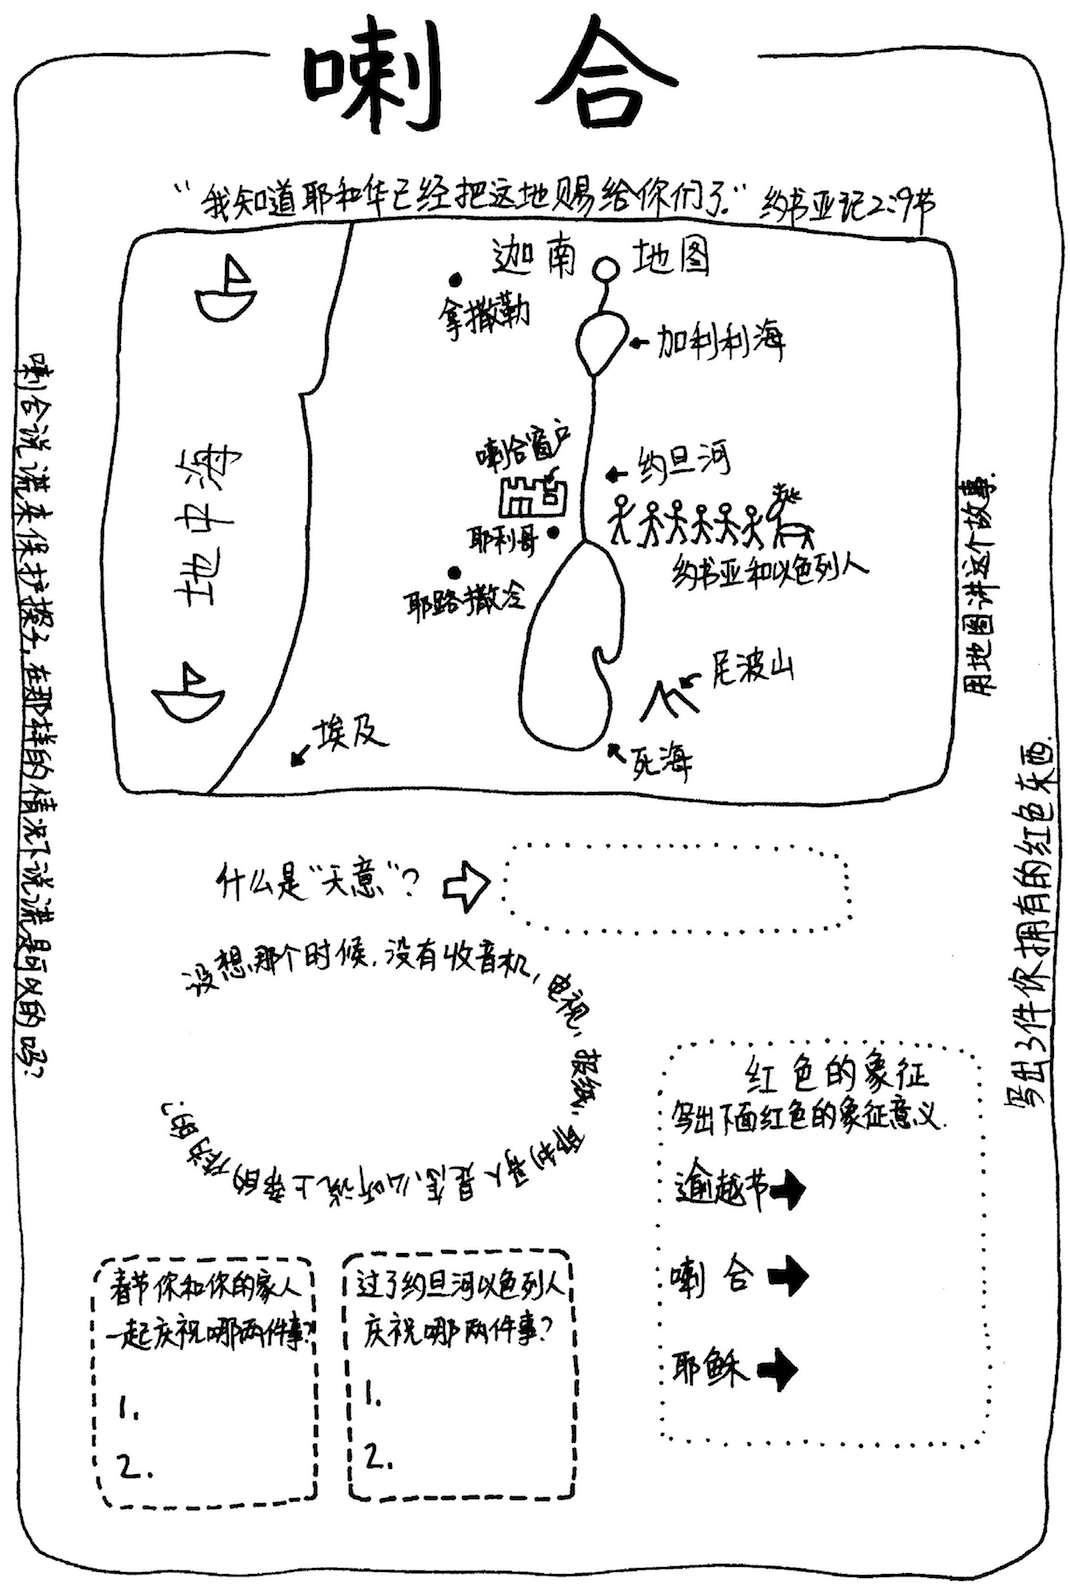 喇合
“我知道耶和华已经把这地赐给你们了.” 约书亚记2:9节
迦南地图
拿撒勒
加利利海
喇合窗户
约旦河
耶利哥
约书亚和以色列人
耶路撒冷
地中海
尼波山
埃及
死海
喇合说谎来保护探子,在那样的情况下说谎是可以的吗?
用地图讲这个故事.
写出3件你拥有的红色东西.
什么是“天意”?
设想,那个时候,没有收音机,电视,报纸,耶利哥人是怎么听说上帝的作为的?
红色的象征
写出下面红色的象征意义.
逾越节
喇合
耶稣
春节你和你的家人
一起庆祝哪两件事?
1.
2.
过了约旦河以色列人
庆祝哪两件事?
1.
2.